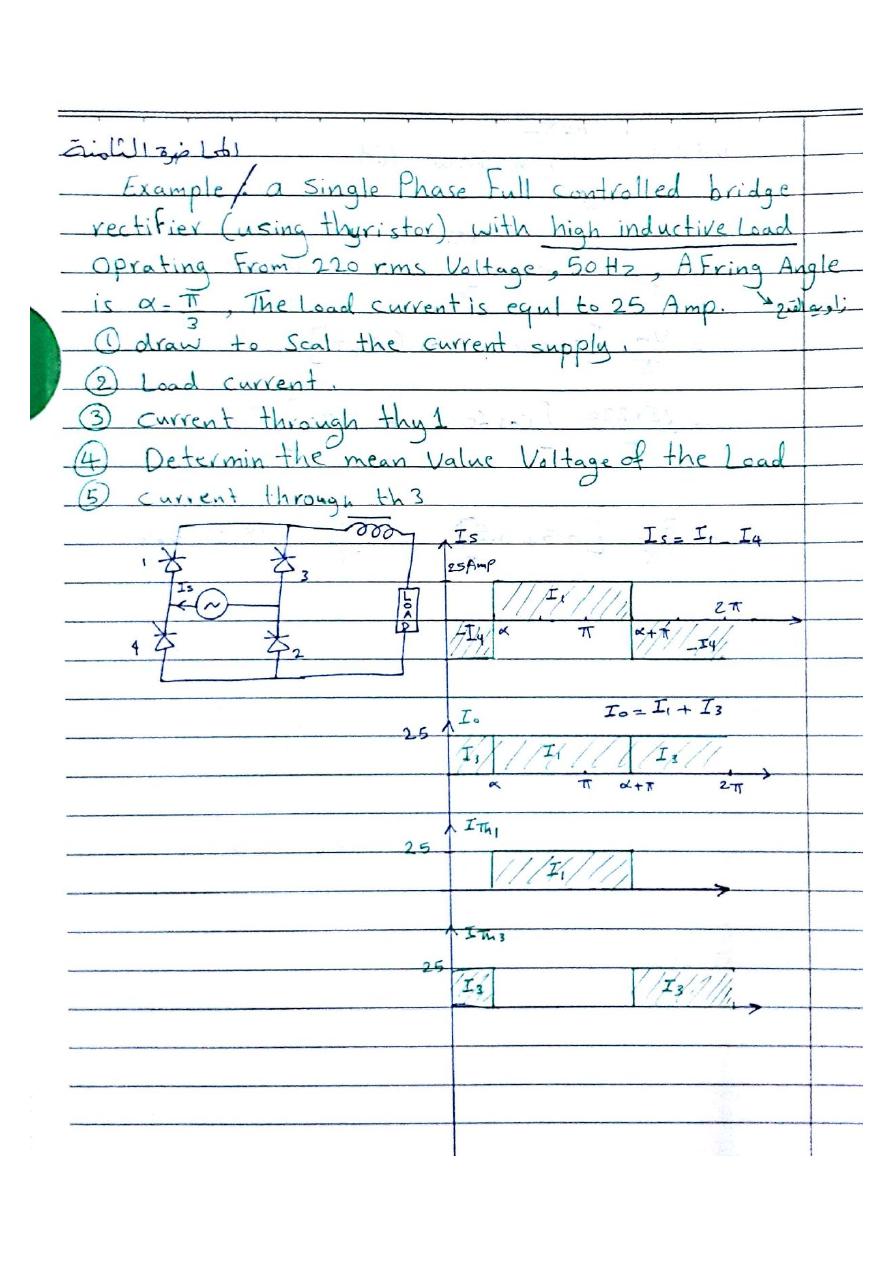 المحاضرة الثامنة
Example/. a Single Phase Full controlled bridge
rectifier (using thyristor) with high inductive Load
Oprating From 220 rms Voltage, 50 Hz, A Fring Angle
is α = π/3, The Load current is equl to 25 Amp. زاوية القدح
① draw to Scal the current supply.
② Load current.
③ current through thy 1
④ Determin the mean value Voltage of the Load
⑤ current through th 3
1
3
Is
4
2
LOAD
Is
Is = I1 - I4
25 Amp
I1
2π
-I4
α
π
α+π
-I4
Io
Io = I1 + I3
25
I3
I1
I3
α
π
α+π
2π
ITh1
25
I1
ITh3
25
I3
I3